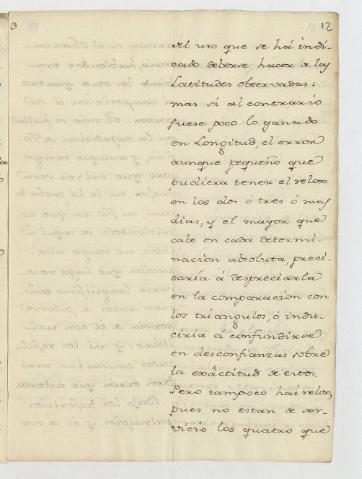 3
12
el uso que se há indi-
cado deberse hacer á las
Latitudes observadas:
mas si al contrario
fuese poco lo ganado
en Longitud, el error
aunque pequeño que
pudiera tener el relox
en los dos ó tres ó mas
dias, y el mayor que
cabe en cada determi-
nacion absoluta, preci-
saría á despreciarla
en la comparacion con
los triangulos, ó indu-
ciria á confundirse
en desconfianzas sobre
la exâctitud de estos.
Pero tampoco hai relox,
pues no estan de ser-
vicio los quatro que